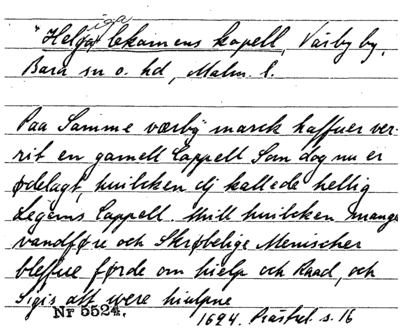 iga
"Helga lekamens kapell, Värby by,
Bara sn o. hd, Malm. l.
Paa Samme værby marck haffuer ver-
rit en gamell Cappell Som dog nu er
ødelagt, huilcken dj kallede hellig
Legems Cappell. Thill huilcken mange
vandføre och Skrøbelige Menischer
bleffue førde om hielp och Raad, och
Sigis att were hiulpne
Nr 5524.
1624. Prästrel. s. 16